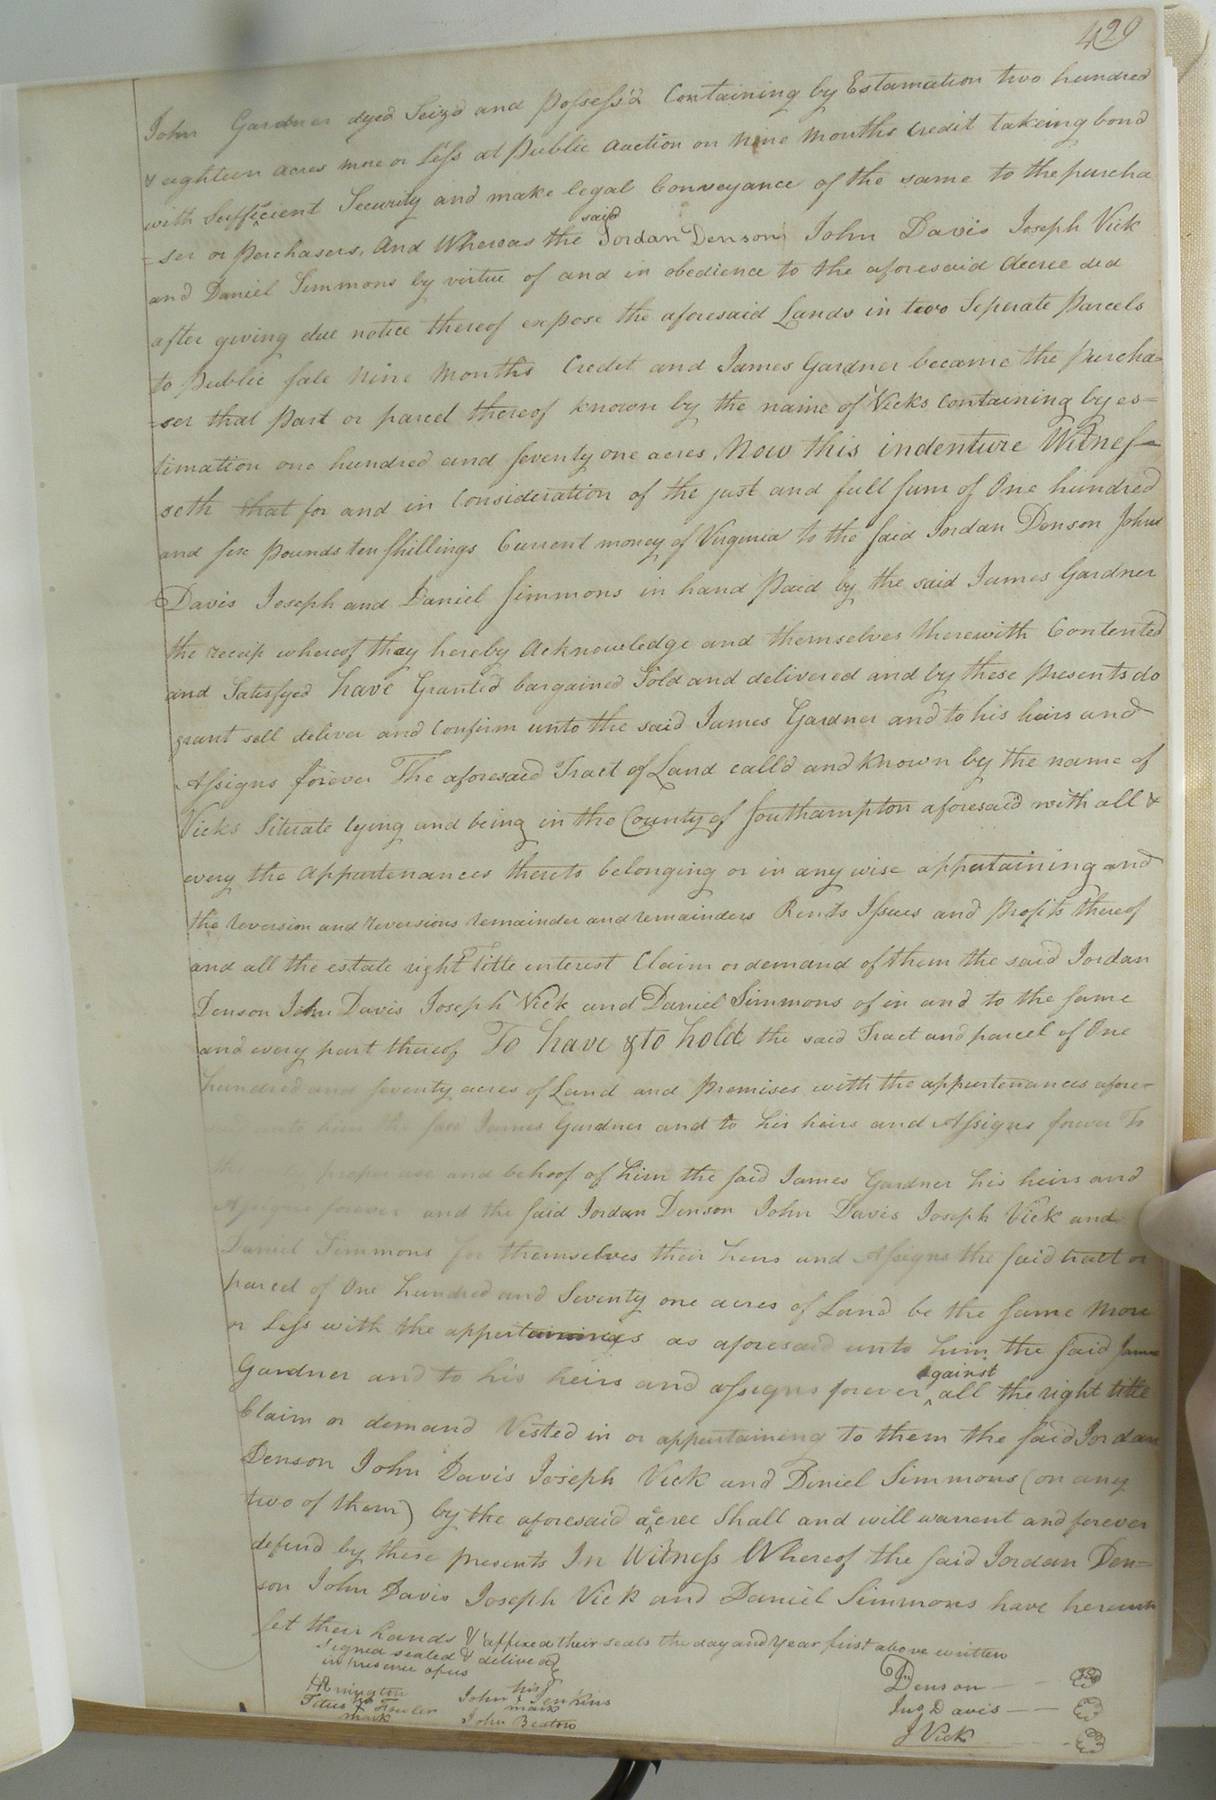 429
John Gardner dyed Seiz'd and Possess'd Containing by Estamation two hundred
& eighteen acres more or Less at Public Auction on Nine Months Credit takeing bond
with Sufficient Security and make legal Conveyance of the same to the purcha
=ser or Perchasers, And Whereas the said Jordan Denson John Davis Joseph Vick
and Daniel Simmons by virtue of and in obedience to the aforesaid decree did
after giving due notice thereof expose the aforesaid Lands in two Seperate Parcels
to Public sale Nine Months Credit and James Gardner became the Purcha=
=ser that Part or parcel thereof known by the name of Vicks containing by es=
timation one hundred and seventy one acres, Now this indenture Witnes=
seth that for and in Consideration of the just and full sum of One hundred
and six Pounds ten shillings Current money of Virginia to the said Jordan Denson John
Davis Joseph and Daniel Simmons in hand Paid by the said James Gardner
the receip whereof they hereby Acknowledge and themselves therewith Contented
and Satisfyed have Granted bargained Sold and delivered and by these presents do
grant sell deliver and Confirm unto the said James Gardner and to his heirs and
Assigns forever The aforesaid Tract of Land call'd and known by the name of
Vicks Situate lying and being in the County of Southampton aforesaid with all &
every the Appurtenances thereto belonging or in any wise appertaining and
the reversion and reversions remainder and remainders Rents Issues and Profits thereof
and all the estate right Title interest Claim or demand of them the said Jordan
Denson John Davis Joseph Vick and Daniel Simmons of in and to the same
and every part thereof To have & to hold the said Tract and parcel of One
hundred and seventy acres of Land and Premises with the appurtenances afore-
unto him the said James Gardner and to his heirs and Assigns forever To
the only proper use and behoof of him the said James Gardner his heirs and
Assigns forever and the said Jordan Denson John Davis Joseph Vick and
Daniel Simmons for themselves their heirs and Assigns the said tract or
parcel of One hundred and Seventy one acres of Land be the same More
or Less with the as aforesaid unto him the said James
Gardner and to his heirs and assigns forever against all the right title
Claim or demand Vested in or appertaining to them the said Jordan
Denson John Davis Joseph Vick and Daniel Simmons (or any
two of them) by the aforesaid Shall and will warrent and forever
defend by these presents In Witness Whereof the said Jordan Den=
son John Davis Joseph Vick and Daniel Simmons have hereunto
set their hands & affixed their seals the day and Year first above written
Signed sealed & deliverd
in presence of us
his
John Jenkins
mark
Titus Fowler
mark
John Beaton
Jn Denson
Jno Davis
J Vick